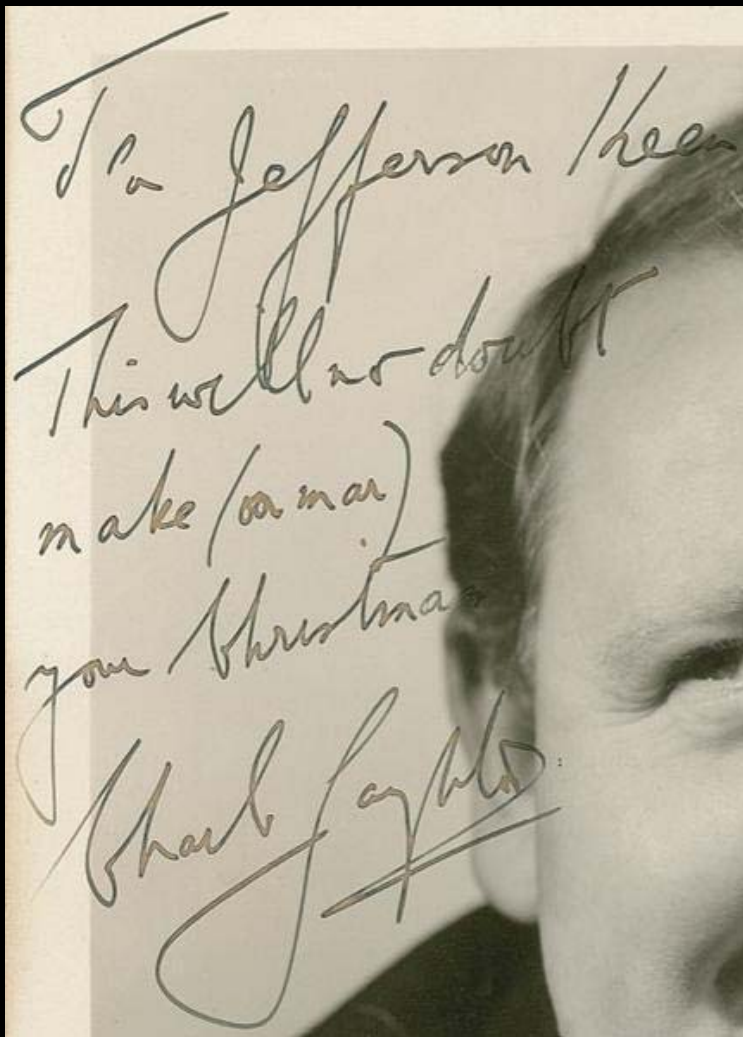 To Jefferson Keen
This will no doubt
make (or mar)
your Christmas
Charles Laughton